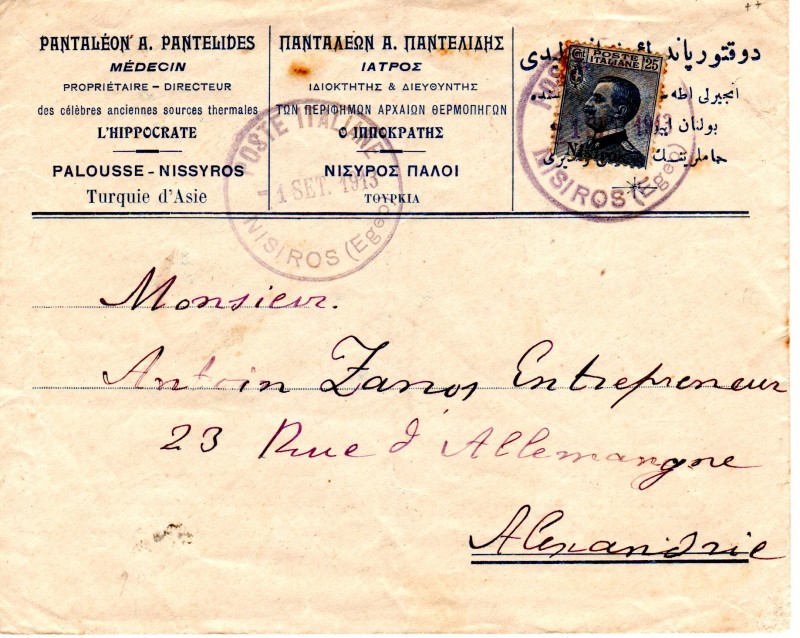 PANTALÉON A. PANTELIDES
MÉDECIN
PROPRIÉTAIRE – DIRECTEUR
des célèbres anciennes sources thermales
L'HIPPOCRATE
PALOUSSE – NISSYROS
Turquie d'Asie
ΠΑΝΤΑΛΕΩΝ Α. ΠΑΝΤΕΛΙΔΗΣ
ΙΑΤΡΟΣ
ΙΔΙΟΚΤΗΤΗΣ & ΔΙΕΥΘΥΝΤΗΣ
ΤΩΝ ΠΕΡΙΦΗΜΩΝ ΑΡΧΑΙΩΝ ΘΕΡΜΟΠΗΓΩΝ
Ο ΙΠΠΟΚΡΑΤΗΣ
ΝΙΣΥΡΟΣ ΠΑΛΟΙ
ΤΟΥΡΚΙΑ
دوقتور
انجيرلى
بولنان
POSTE ITALIANE 25
POSTE ITALIANE
1 SET. 1913
NISIROS (Egeo)
1913
NISIROS (Egeo)
Monsieur.
Antoin Zanos Entrepreneur
23 Rue d'Allemangne
Alexandrie